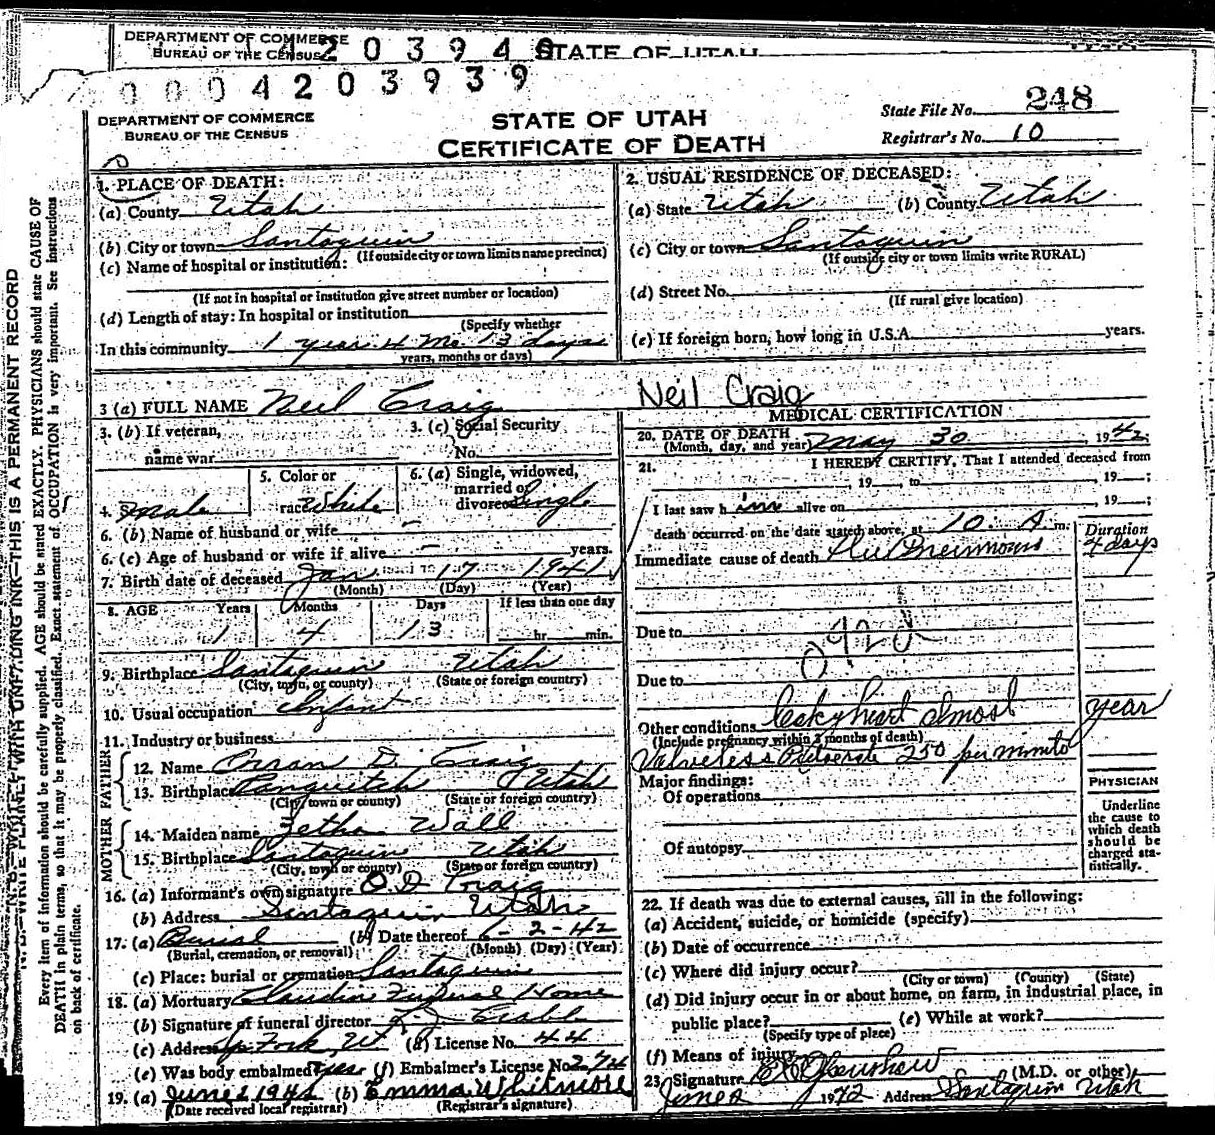 DEPARTMENT OF COMMERCE
BUREAU OF THE CENSUS
4203940
STATE OF UTAH
0004203939
DEPARTMENT OF COMMERCE
BUREAU OF THE CENSUS
STATE OF UTAH
CERTIFICATE OF DEATH
State File No. 248
Registrar's No. 10
1. PLACE OF DEATH:
(a) County Utah
(b) City or town Santaquin
(If outside city or town limits name precinct)
(c) Name of hospital or institution:
(If not in hospital or institution give street number or location)
(d) Length of stay: In hospital or institution
(Specify whether
In this community 1 year 4 Mo. 13 days
years, months or days)
2. USUAL RESIDENCE OF DECEASED:
(a) State Utah (b) County Utah
(c) City or town Santaquin
(If outside city or town limits write RURAL)
(d) Street No.
(If rural give location)
(e) If foreign born, how long in U.S.A. years.
3 (a) FULL NAME Neil Craig
Neil Craig
3. (b) If veteran,
name war
3. (c) Social Security
No.
4. Sex Male
5. Color or
race White
6. (a) Single, widowed,
married or
divorced Single
6. (b) Name of husband or wife -
6. (c) Age of husband or wife if alive - years.
7. Birth date of deceased Jan 17 1941
(Month) (Day) (Year)
8. AGE Years Months Days If less than one day
1 4 13 hr. min.
9. Birthplace Santaquin Utah
(City, town, or county) (State or foreign country)
10. Usual occupation Infant
11. Industry or business
FATHER
12. Name Orran D. Craig
13. Birthplace Panguitch Utah
(City, town or county) (State or foreign country)
MOTHER
14. Maiden name Zetha Wall
15. Birthplace Santaquin Utah
(City, town or county) (State or foreign country)
16. (a) Informant's own signature O D Craig
(b) Address Santaquin Utah
17. (a) Burial (b) Date thereof 6-2-42
(Burial, cremation, or removal) (Month) (Day) (Year)
(c) Place: burial or cremation Santaquin
18. (a) Mortuary Claudin Funeral Home
(b) Signature of funeral director
(c) Address Sp Fork, Ut (d) License No. 44
(e) Was body embalmed yes (f) Embalmer's License No. 274
19. (a) June 2 1942 (b) Emma Whitmore
(Date received local registrar) (Registrar's signature)
MEDICAL CERTIFICATION
20. DATE OF DEATH
(Month, day, and year) May 30, 1942;
21. I HEREBY CERTIFY, That I attended deceased from
, 19 , to , 19 ;
I last saw him alive on , 19 ;
death occurred on the date stated above, at 10 A m.
Duration
Immediate cause of death Flu Pneumonia 4 days
Due to
Due to
Other conditions Leaky heart almost year
(Include pregnancy within 3 months of death)
Valveless Pulserate 250 per minute
Major findings:
Of operations
Of autopsy
PHYSICIAN
Underline
the cause to
which death
should be
charged sta-
tistically.
22. If death was due to external causes, fill in the following:
(a) Accident, suicide, or homicide (specify)
(b) Date of occurrence
(c) Where did injury occur?
(City or town) (County) (State)
(d) Did injury occur in or about home, on farm, in industrial place, in
public place? (e) While at work?
(Specify type of place)
(f) Means of injury
23. Signature (M.D. or other)
June 1942 Address Santaquin Utah
N. B.—WRITE PLAINLY WITH UNFADING INK—THIS IS A PERMANENT RECORD
Every item of information should be carefully supplied. AGE should be stated EXACTLY. PHYSICIANS should state CAUSE OF
DEATH in plain terms, so that it may be properly classified. Exact statement of OCCUPATION is very important. See instructions
on back of certificate.